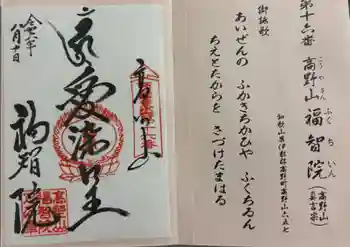 第十六番 高野山 福智院 (高野山真言宗)
こうやさん ふくちいん
和歌山県伊都郡高野町高野山六五七
御詠歌
あいぜんの ふかきちかひや ふくちゐん
ちえとたからを さづけたまはる
愛染明王
福智院
八月十日